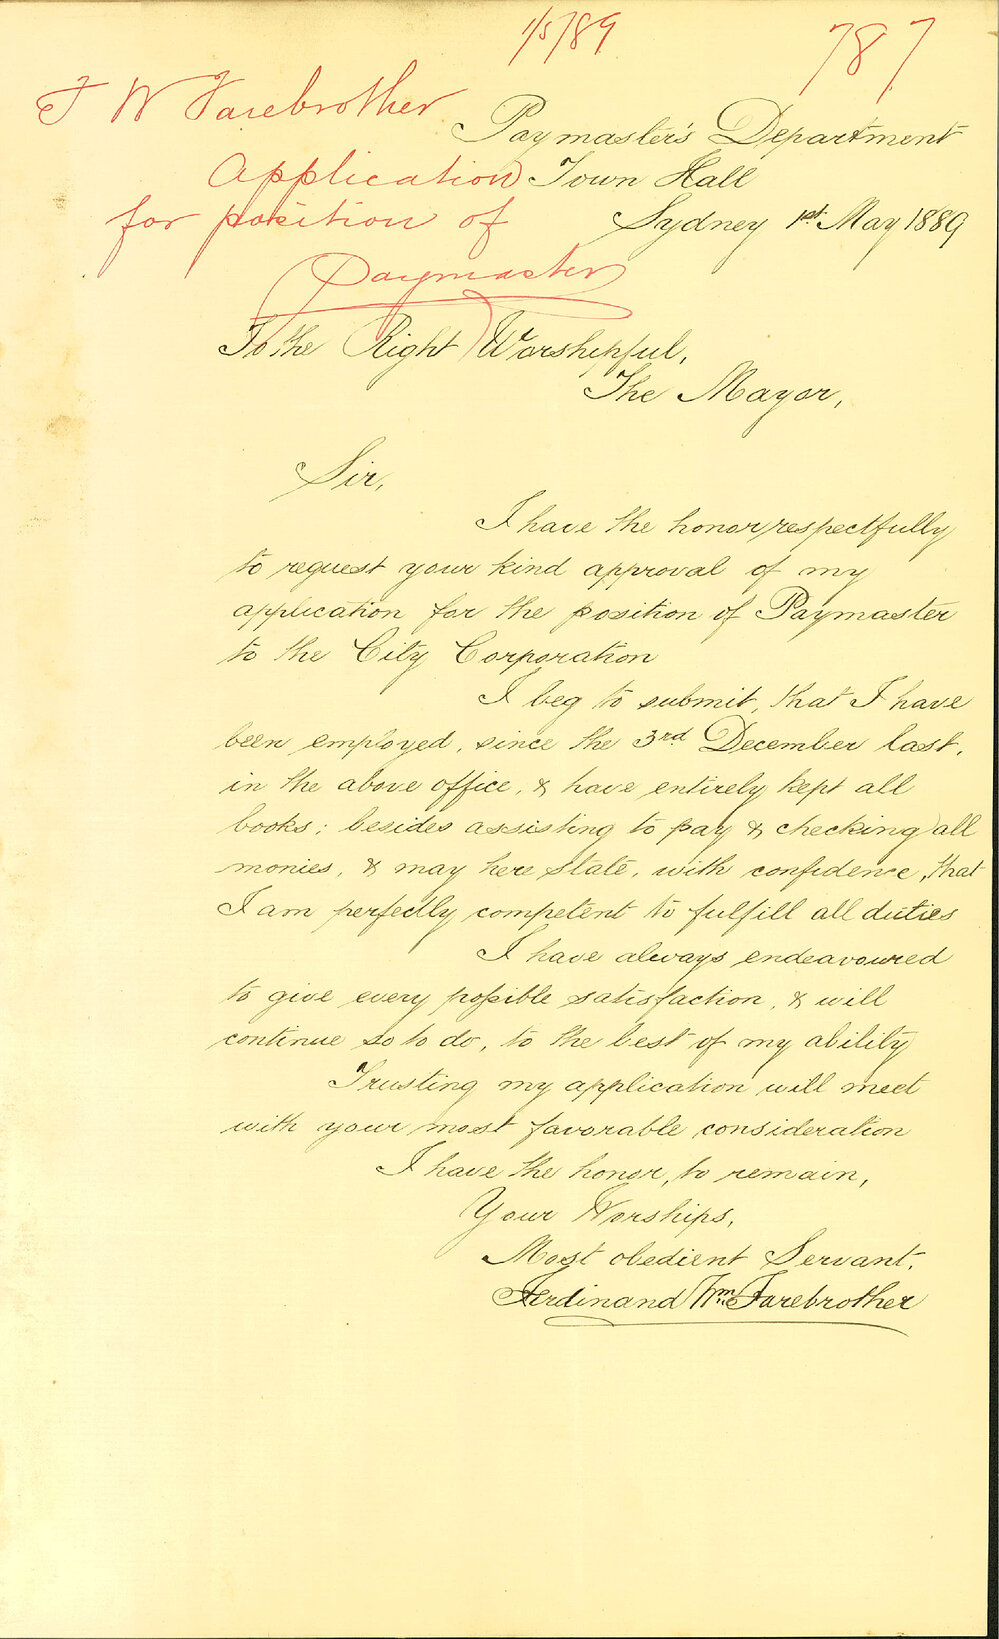 1/5/89
787
F W Farebrother
Application
for position of
Paymaster
Paymaster's Department
Town Hall
Sydney 1st May 1889
To the Right Worshipful,
The Mayor,
Sir,
I have the honor respectfully
to request your kind approval of my
application for the position of Paymaster
to the City Corporation
I beg to submit, that I have
been employed, since the 3rd December last,
in the above office, & have entirely kept all
books; besides assisting to pay & checking all
monies, & may here state, with confidence, that
I am perfectly competent to fulfill all duties
I have always endeavoured
to give every possible satisfaction, & will
continue so to do, to the best of my ability
Trusting my application will meet
with your most favorable consideration
I have the honor, to remain,
Your Worships,
Most obedient Servant.
Ferdinand Wm Farebrother